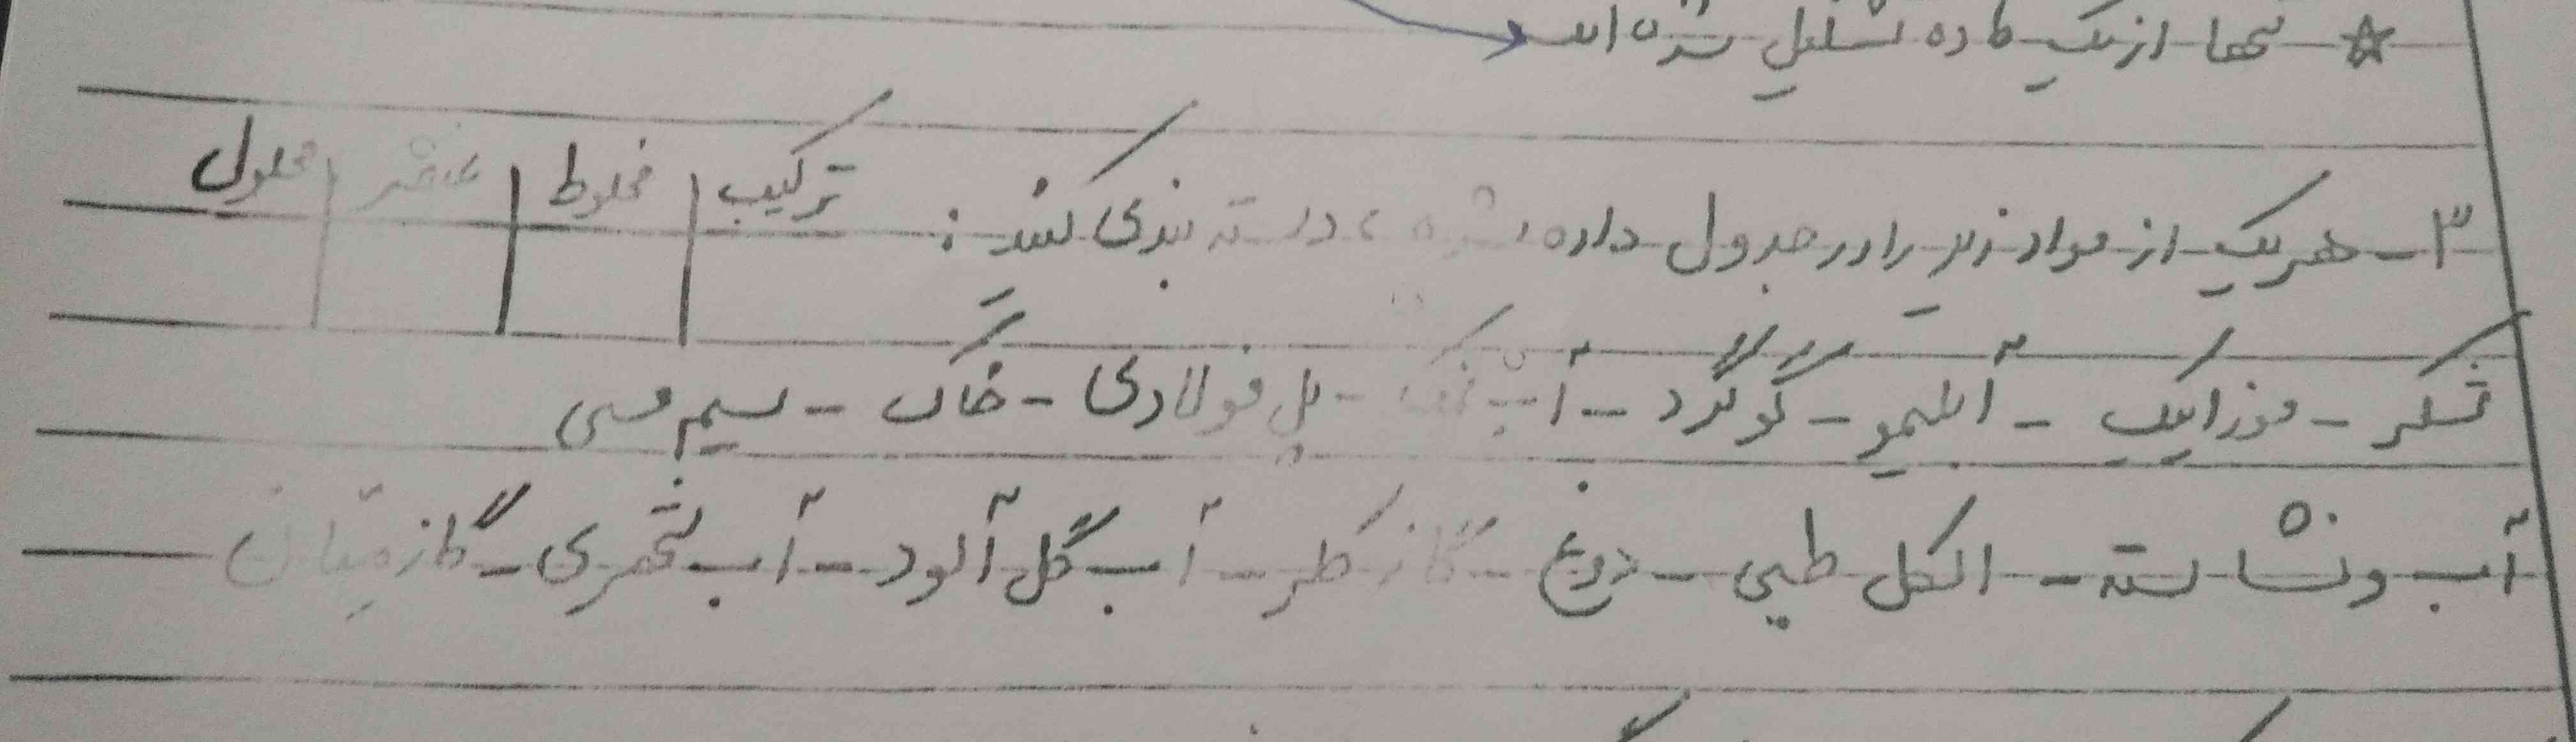 ☆ تنها از یک ماده تشکیل شده اند
۳- هر یک از مواد زیر را در جدول داده شده، دسته بندی کنید:
ترکیب | مخلوط | عنصر | محلول
شکر - موزاییک - آبلیمو - گوگرد - آب نمک - پل فولادی - خاک - سیم مسی
آب و نشاسته - الکل طبی - دوغ - گاز کلر - آب گل آلود - آب شهری - گاز متان